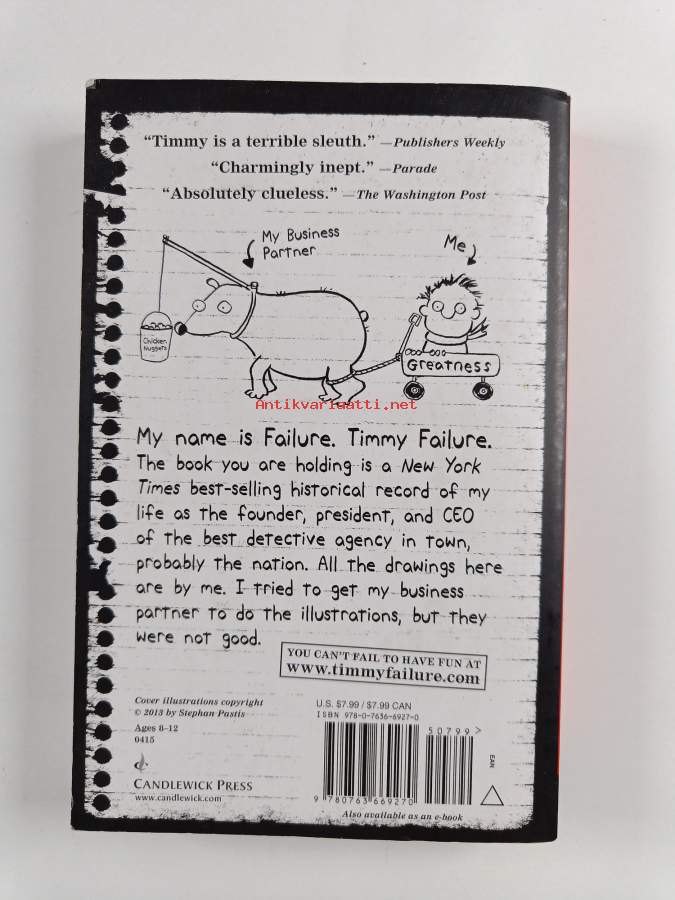 “Timmy is a terrible sleuth.” —Publishers Weekly
“Charmingly inept.” —Parade
“Absolutely clueless.” —The Washington Post
My Business
Partner
Me
Chicken
Nuggets
Greatness
Antikvariaatti.net
My name is Failure. Timmy Failure.
The book you are holding is a New York
Times best-selling historical record of my
life as the founder, president, and CEO
of the best detective agency in town,
probably the nation. All the drawings here
are by me. I tried to get my business
partner to do the illustrations, but they
were not good.
YOU CAN’T FAIL TO HAVE FUN AT
www.timmyfailure.com
Cover illustrations copyright
© 2013 by Stephan Pastis
Ages 8–12
0415
CANDLEWICK PRESS
www.candlewick.com
U.S. $7.99 / $7.99 CAN
ISBN 978-0-7636-6927-0
50799>
EAN
9 780763 669270
Also available as an e-book